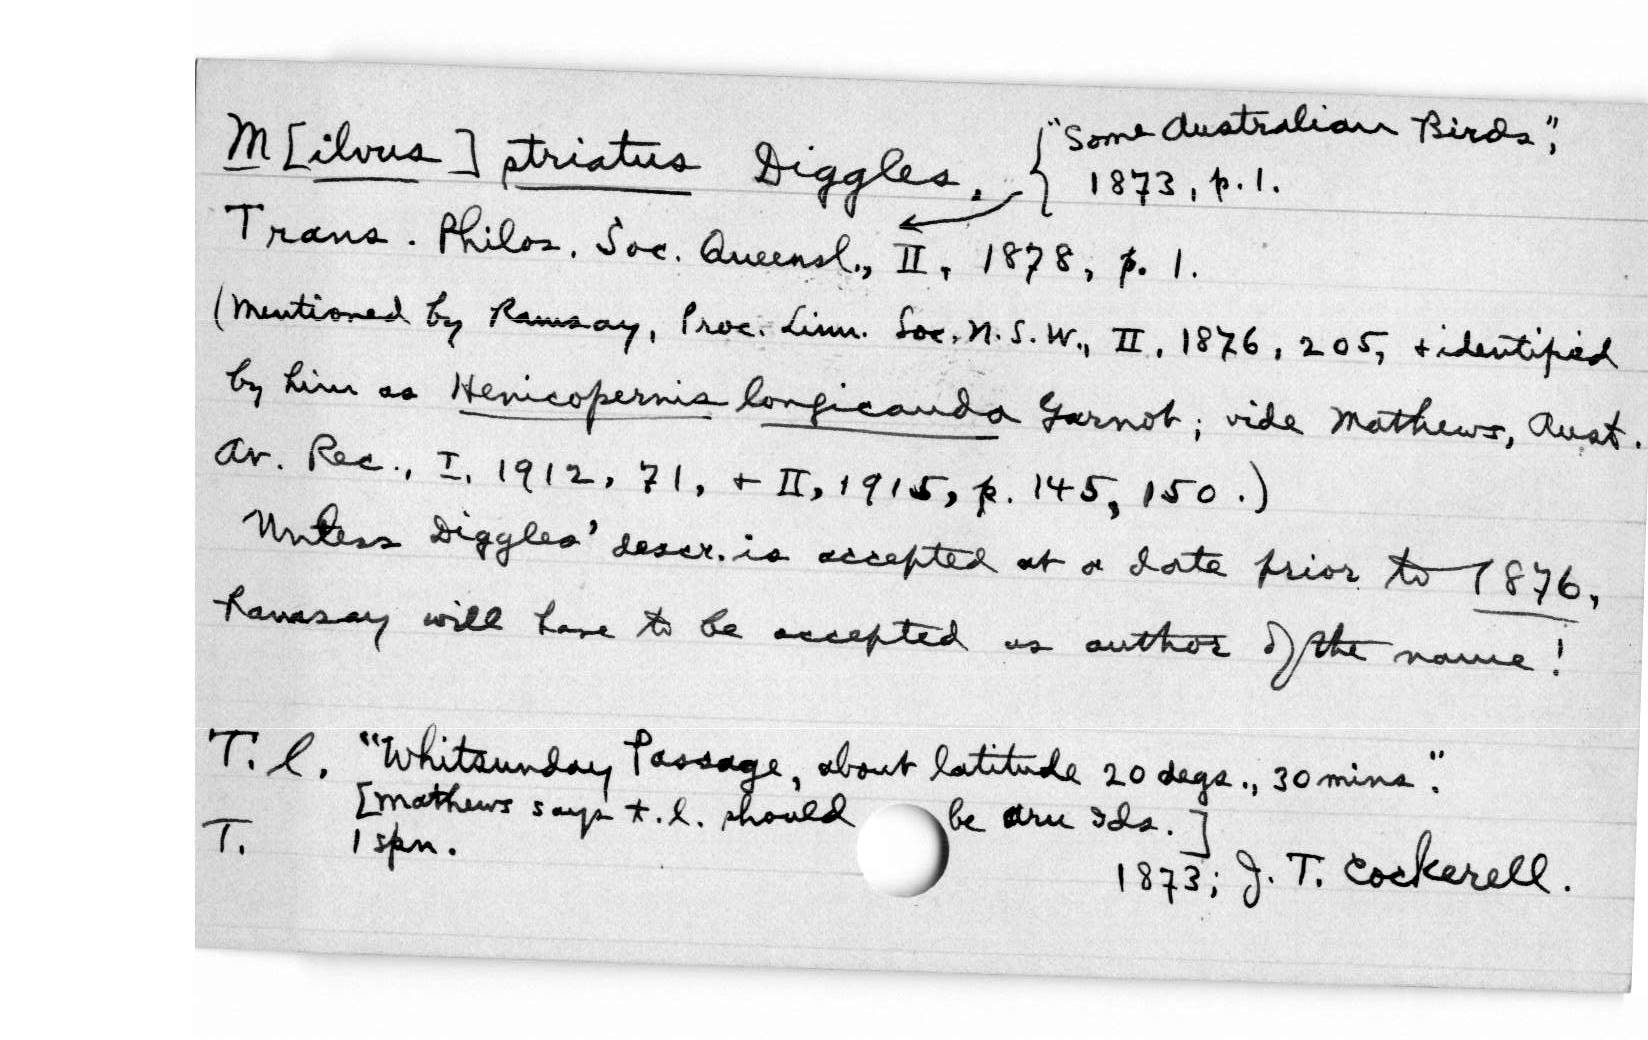 M[ilvus] striatus Diggles, {"Some Australian Birds",
1873, p. 1.
Trans. Philos. Soc. Queensl., II, 1878, p. 1.
(Mentioned by Ramsay, Proc. Linn. Soc. N.S.W., II, 1876, 205, + identified
by him as Henicopernis longicauda Garnot; vide Mathews, Aust.
Av. Rec., I, 1912, 71, + II, 1915, p. 145, 150.)
Unless Diggles' descr. is accepted at a date prior to 1876,
Ramsay will have to be accepted as author of the name!
T. l. "Whitsunday Passage, about latitude 20 degs., 30 mins."
[Mathews says t.l. should be Aru Ids.]
T. 1 spn.
1873; J. T. Cockerell.